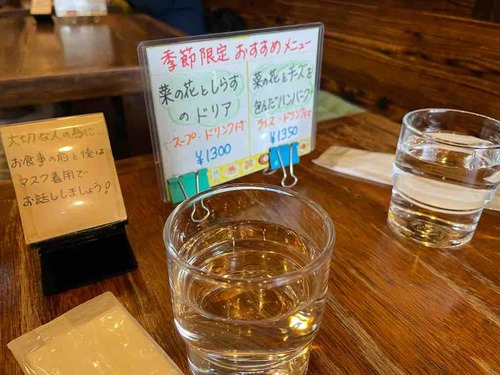 季節限定 おすすめメニュー
菜の花としらす
のドリア
スープ・ドリンク付
¥1300
菜の花とチーズを
包んだハンバーグ
ライス・ドリンク付
¥1350
大切な人の為に…
お食事の前と後は
マスク着用で
お話ししましょう!